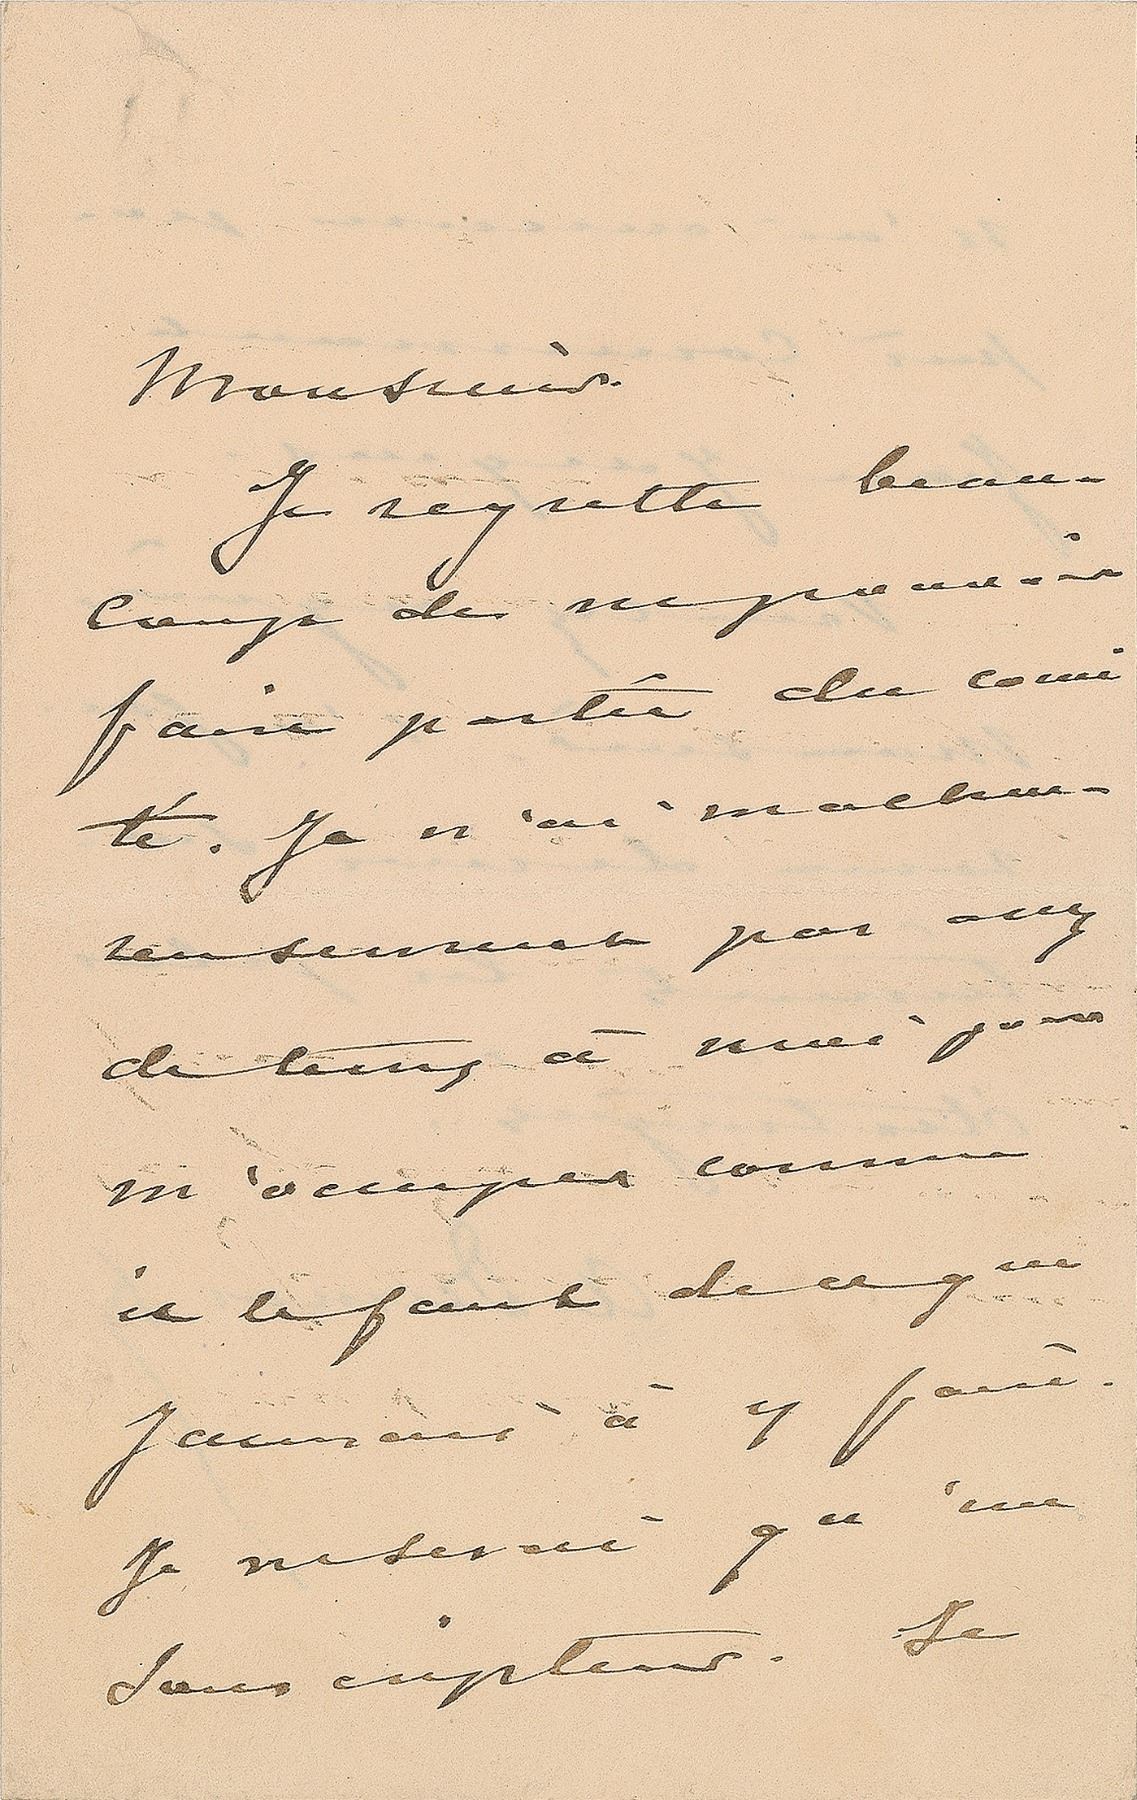 Monsieur.
Je regrette beau-
coup de ne pouvoir
faire partie du comi
té. Je n'ai malheu-
reusement pas assez
de temps à moi pour
m'occuper comme
il le faut de ce que
J'aurais à y faire.
Je ne serai qu'un
Souscripteur. Je